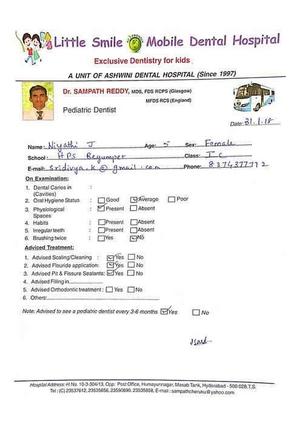 Little Smile Mobile Dental Hospital
Exclusive Dentistry for kids
A UNIT OF ASHWINI DENTAL HOSPITAL (Since 1997)
Dr. SAMPATH REDDY, MDS, FDS RCPS (Glasgow)
MFDS RCS (England)
Pediatric Dentist
Date: 31.1.18
Name: Niyathi J Age: 5 Sex: Female
School: HPS Begumpet Class: I C
E-mail: Sridivya.k@gmail.com Phone:
On Examination:
1. Dental Caries in :
(Cavities)
2. Oral Hygiene Status : Good Average Poor
3. Physiological : Present Absent
Spaces
4. Habits : Present Absent
5. Irregular teeth : Present Absent
6. Brushing twice : Yes No
Advised Treatment:
1. Advised Scaling/Cleaning : Yes No
2. Advised Flouride application: Yes No
3. Advised Pit & Fissure Sealants: Yes No
4. Advised Filling in
5. Advised Orthodontic treatment : Yes No
6. Others:
Note: Advised to see a pediatric dentist every 3-6 months Yes No
Hospital Address: H.No. 10-3-304/13, Opp. Post Office, Humayunnagar, Masab Tank, Hyderabad - 500 028.T.S.
Tel: (C) 23537612, 23535656, 23590890, 23535858, E-mail: